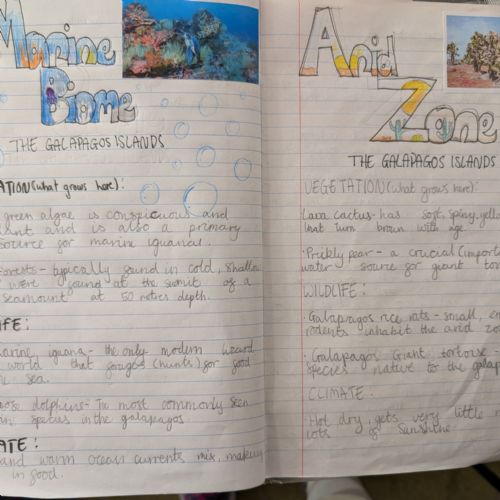 Marine
Biome
THE GALAPAGOS ISLANDS
ATION (what grows here):
green algae is conspicuous and
ant and is also a primary
source for marine iguanas.
Forests - typically found in cold, shallow
were found at the sumit of a
seamount at 50 metres depth.
IFE:
marine iguana - the only modern lizard
world that forages (hunts) for food
sea.
ose dolphins - The most commonly seen
an species in the galapagos.
ATE:
and warm ocean currents mix, making
in food.
Arid
Zone
THE GALAPAGOS ISLANDS
VEGETATION (what grows here):
Lava cactus - has soft, spiny, yello
that turn brown with age
· Prickly pear - a crucial (importa
water source for giant tor
WILDLIFE:
· Galapagos rice rats - small, en
rodents inhabit the arid zo
· Galapagos Giant tortoise
species native to the galap
CLIMATE:
Hot, dry, gets very little
lots of sunshine